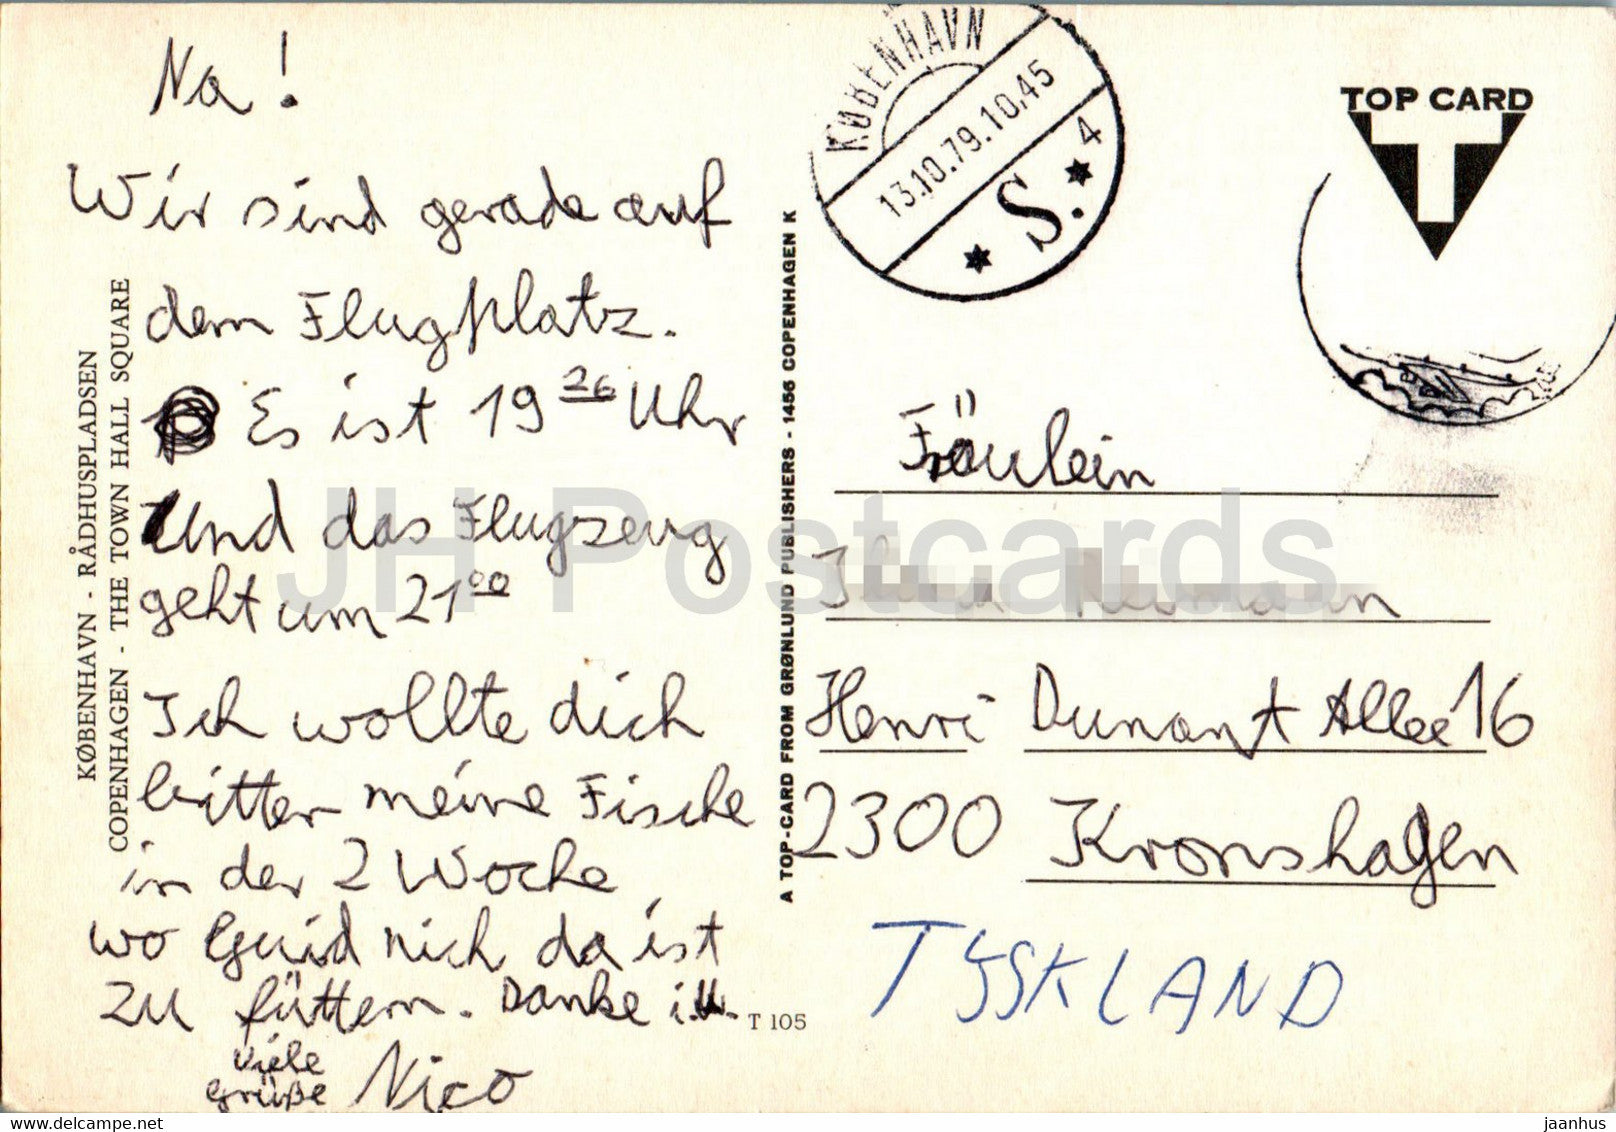 Na!
Wir sind gerade auf
dem Flugplatz.
Es ist 19 26 Uhr
Und das Flugzeug
geht um 21 00
Ich wollte dich
bitten meine Fische
in der 2 Woche
wo Guid nich da ist
zu füttern. Danke i.V.
Viele
Grüße Nico
KØBENHAVN - RÅDHUSPLADSEN
COPENHAGEN - THE TOWN HALL SQUARE
T 105
A TOP-CARD FROM GRØNLUND PUBLISHERS - 1456 COPENHAGEN K
KØBENHAVN
13.10.79.10.45
S. 4
TOP CARD
T
Fräulein
Henri Dunant Allee 16
2300 Kronshagen
TYSKLAND
JH Postcards
delcampe.net
jaanhus